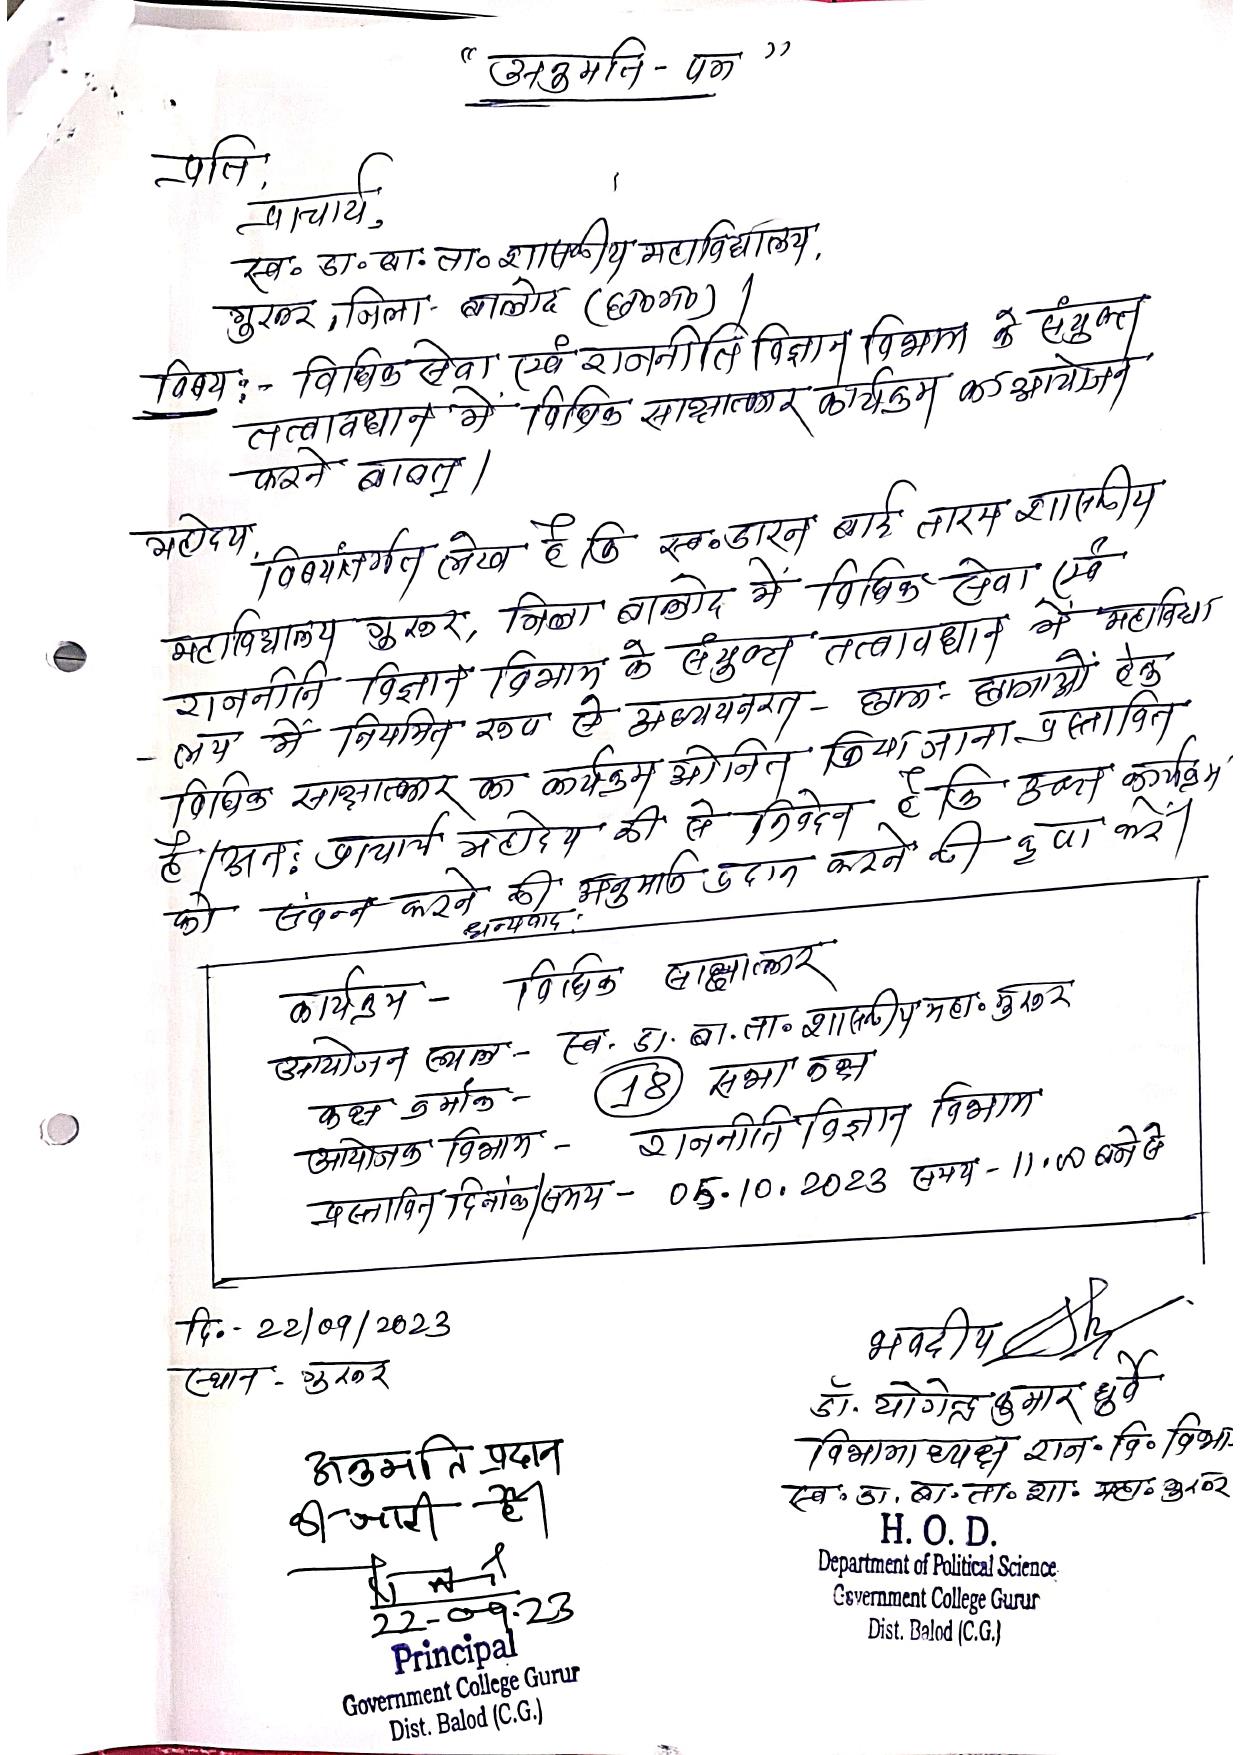 “अनुमति - पत्र”
प्रति,
प्राचार्य,
स्व॰ डा॰ बा॰ ता॰ शासकीय महाविद्यालय,
गुरूर, जिला - बालोद (छ०ग०)।
विषय:- विधिक सेवा एवं राजनीति विज्ञान विभाग के संयुक्त
तत्वावधान में विधिक साक्षात्कार कार्यक्रम का आयोजन
करने बाबत्।
महोदय,
विषयांतर्गत लेख है कि स्व॰ डारन बाई तारम शासकीय
महाविद्यालय गुरूर, जिला बालोद में विधिक सेवा एवं
राजनीति विज्ञान विभाग के संयुक्त तत्वावधान में महाविद्या
- लय में नियमित रूप से अध्ययनरत - छात्र - छात्राओं हेतु
विधिक साक्षात्कार का कार्यक्रम किया जाना प्रस्तावित
है। अतः प्राचार्य महोदय जी से निवेदन है कि उक्त कार्यक्रम
को संपन्न करने की अनुमति प्रदान करने की कृपा करें।
धन्यवाद!
कार्यक्रम - विधिक साक्षात्कार
आयोजन स्थल - स्व. डा. बा. ता॰ शासकीय महा॰ गुरूर
कक्ष क्रमांक - 18 सभा कक्ष
आयोजक विभाग - राजनीति विज्ञान विभाग
प्रस्तावित दिनांक/समय - 05.10.2023 समय - 11.00 बजे से
दि॰ - 22/09/2023
स्थान - गुरूर
भवदीय
डॉ. योगेन्द्र कुमार धुर्वे
विभागाध्यक्ष राज॰ वि॰ विभा
स्व॰ डा. बा॰ ता॰ शा॰ महा॰ गुरूर
H. O. D.
Department of Political Science
Government College Gurur
Dist. Balod (C.G.)
अनुमति प्रदान
की जाती है।
22-09-23
Principal
Government College Gurur
Dist. Balod (C.G.)